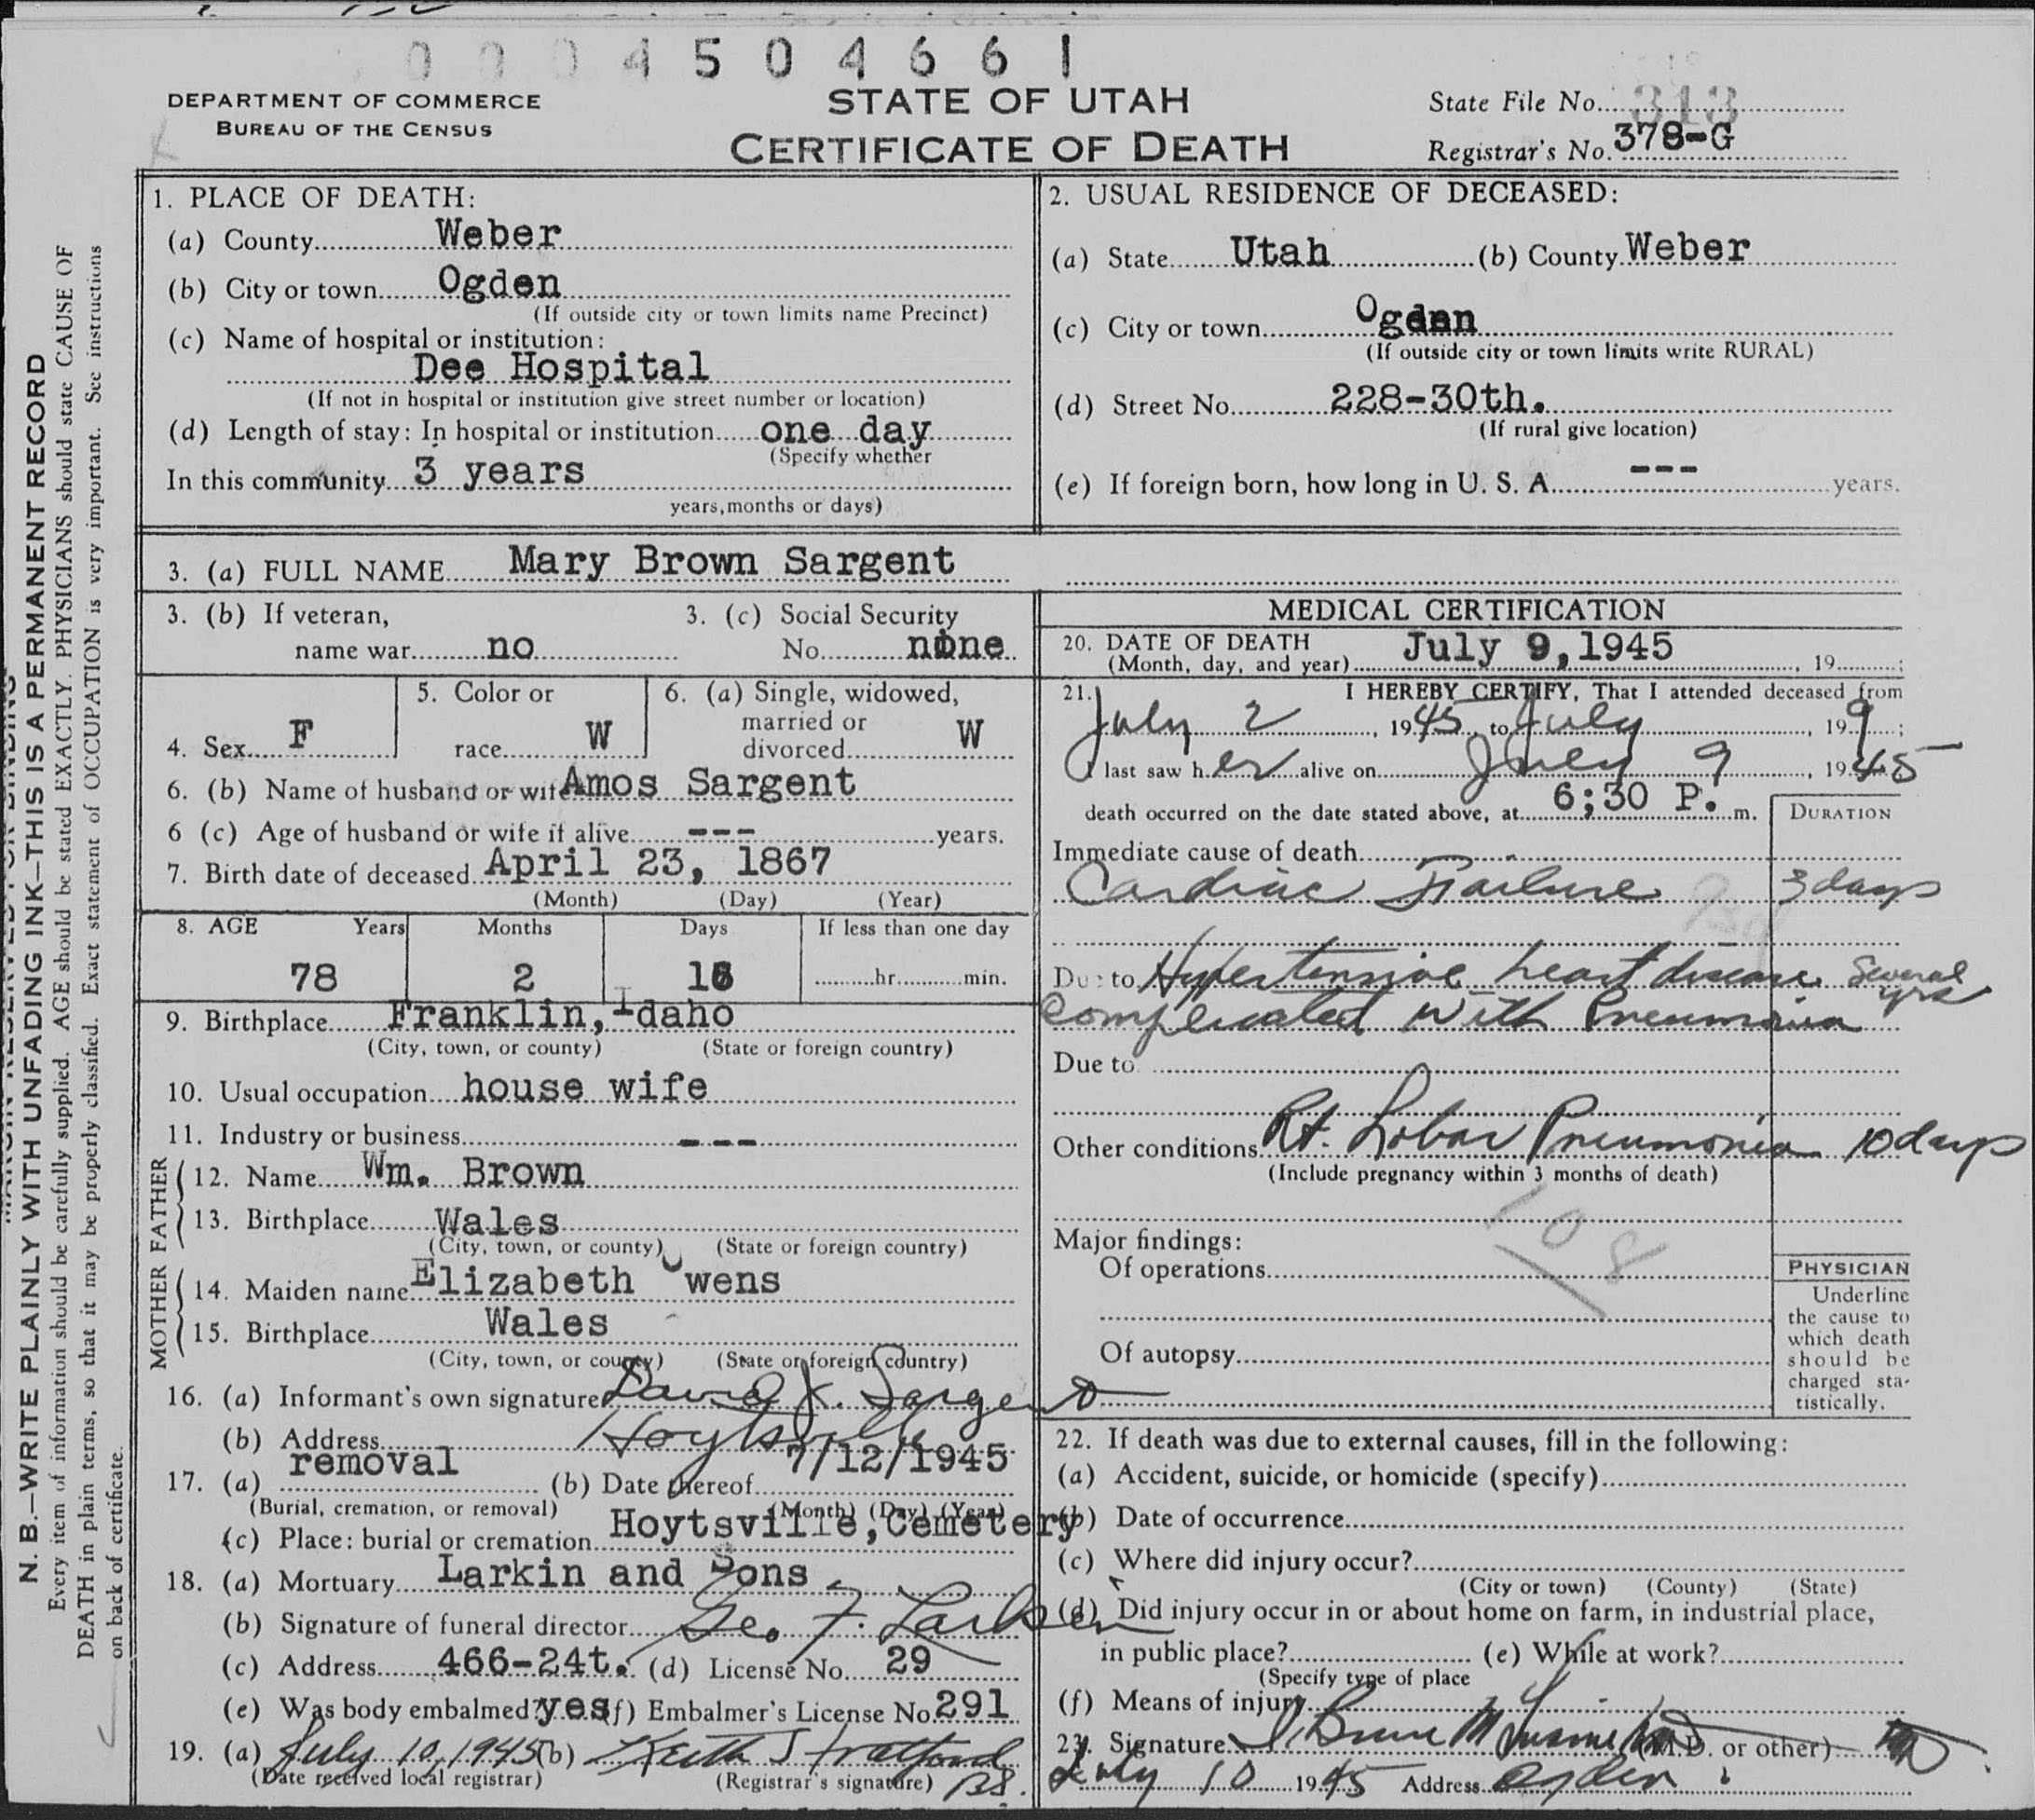 0004504661
DEPARTMENT OF COMMERCE
BUREAU OF THE CENSUS
STATE OF UTAH
CERTIFICATE OF DEATH
State File No. 313
Registrar's No. 378-G
N. B.—WRITE PLAINLY WITH UNFADING INK—THIS IS A PERMANENT RECORD
Every item of information should be carefully supplied. AGE should be stated EXACTLY. PHYSICIANS should state CAUSE OF
DEATH in plain terms, so that it may be properly classified. Exact statement of OCCUPATION is very important. See instructions
on back of certificate.
1. PLACE OF DEATH:
(a) County Weber
(b) City or town Ogden
(If outside city or town limits name Precinct)
(c) Name of hospital or institution:
Dee Hospital
(If not in hospital or institution give street number or location)
(d) Length of stay: In hospital or institution one day
(Specify whether
In this community 3 years
years, months or days)
2. USUAL RESIDENCE OF DECEASED:
(a) State Utah (b) County Weber
(c) City or town Ogden
(If outside city or town limits write RURAL)
(d) Street No. 228-30th.
(If rural give location)
(e) If foreign born, how long in U. S. A. --- years.
3. (a) FULL NAME Mary Brown Sargent
3. (b) If veteran, name war no
3. (c) Social Security No. none
4. Sex F
5. Color or race W
6. (a) Single, widowed, married or divorced W
6. (b) Name of husband or wife Amos Sargent
6 (c) Age of husband or wife if alive --- years.
7. Birth date of deceased April 23, 1867
(Month) (Day) (Year)
8. AGE Years Months Days If less than one day
78 2 16 hr. min.
9. Birthplace Franklin, Idaho
(City, town, or county) (State or foreign country)
10. Usual occupation house wife
11. Industry or business ---
FATHER
12. Name Wm. Brown
13. Birthplace Wales
(City, town, or county) (State or foreign country)
MOTHER
14. Maiden name Elizabeth Owens
15. Birthplace Wales
(City, town, or county) (State or foreign country)
16. (a) Informant's own signature David J. Sargent
(b) Address Hoytsville
17. (a) removal (b) Date thereof 7/12/1945
(Burial, cremation, or removal) (Month) (Day) (Year)
(c) Place: burial or cremation Hoytsville, Cemetery
18. (a) Mortuary Larkin and Sons
(b) Signature of funeral director Geo. F. Larkin
(c) Address 466-24t. (d) License No. 29
(e) Was body embalmed? yes (f) Embalmer's License No. 291
19. (a) July 10, 1945 (b) Keith Stratford
(Date received local registrar) (Registrar's signature) BS.
MEDICAL CERTIFICATION
20. DATE OF DEATH July 9, 1945
(Month, day, and year) , 19 ;
21. I HEREBY CERTIFY, That I attended deceased from
July 2, 1945, to July, 19 9;
I last saw her alive on July 9, 1945
death occurred on the date stated above, at 6;30 P. m.
DURATION
Immediate cause of death
Cardiac Failure 3 days
Due to Hypertensive heart disease Several yrs
Complicated with Pneumonia
Due to
Other conditions Rt. Lobar Pneumonia 10 days
(Include pregnancy within 3 months of death)
108
Major findings:
Of operations
Of autopsy
PHYSICIAN
Underline
the cause to
which death
should be
charged sta-
tistically.
22. If death was due to external causes, fill in the following:
(a) Accident, suicide, or homicide (specify)
(b) Date of occurrence
(c) Where did injury occur?
(City or town) (County) (State)
(d) Did injury occur in or about home on farm, in industrial place,
in public place? (e) While at work?
(Specify type of place
(f) Means of injury
23. Signature (M.D. or other)
July 10 1945 Address Ogden